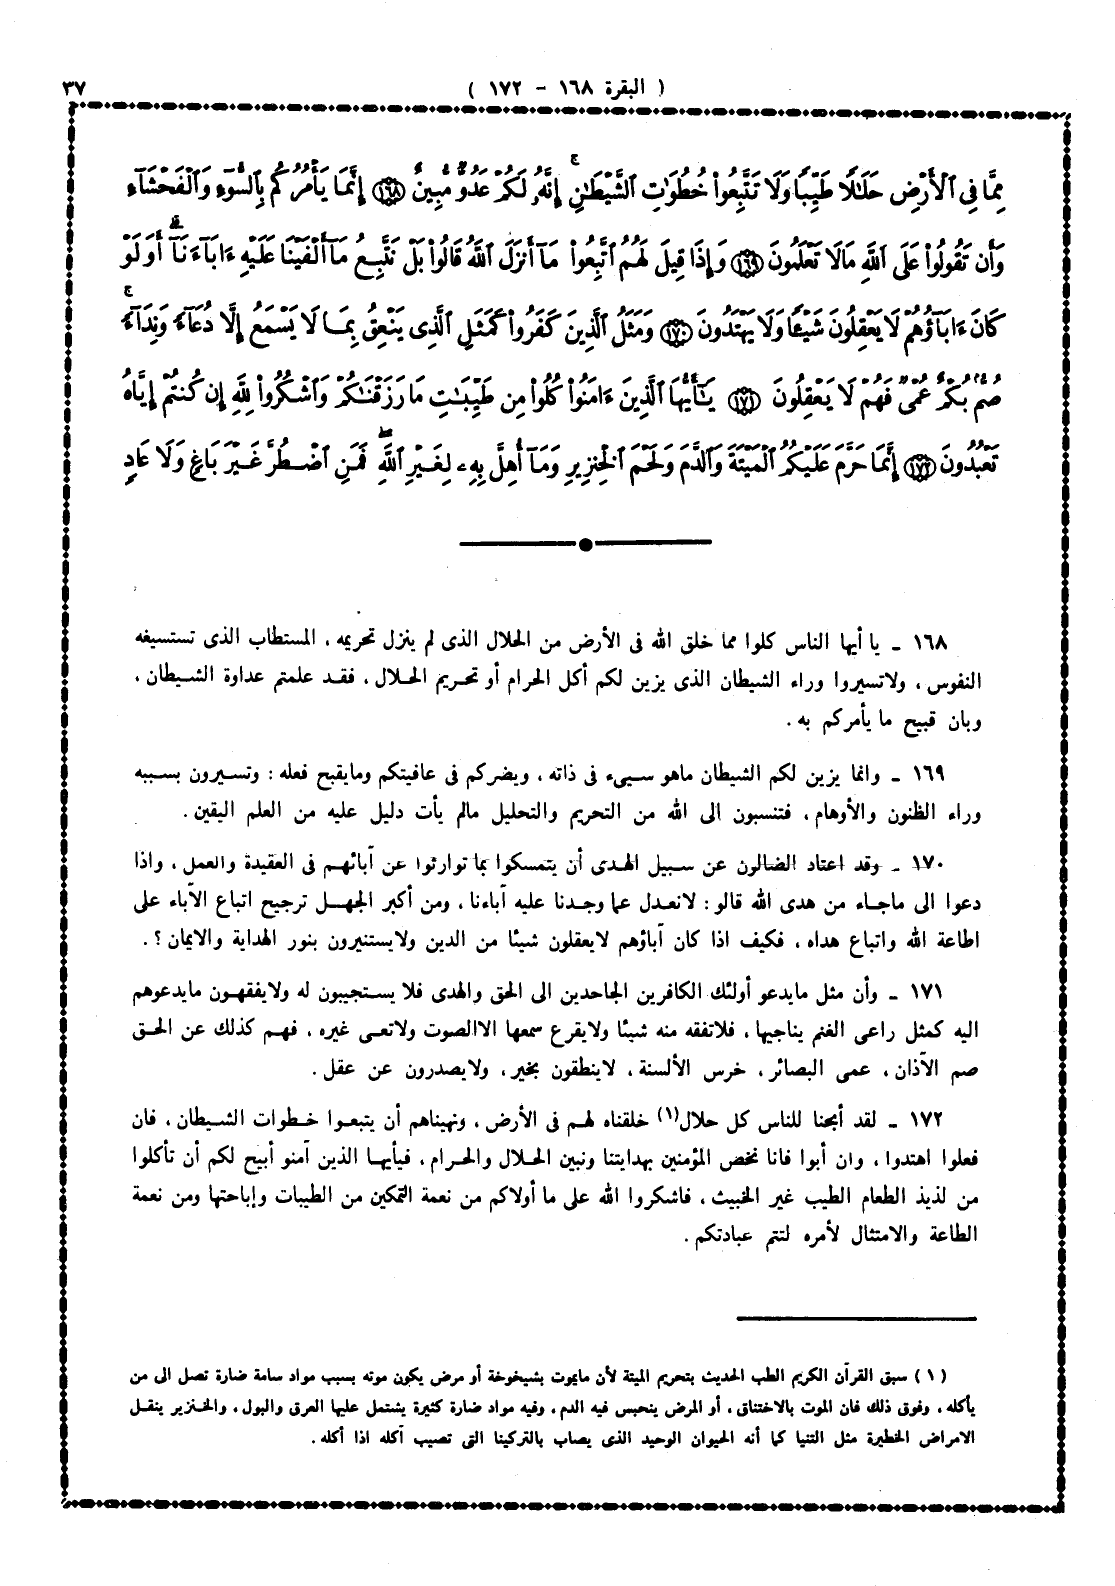 ( البقرة ١٦٨ - ١٧٢ )
٣٧
مِمَّا فِى ٱلْأَرْضِ حَلَٰلًا طَيِّبًا وَلَا تَتَّبِعُوا۟ خُطُوَٰتِ ٱلشَّيْطَٰنِۚ إِنَّهُۥ لَكُمْ عَدُوٌّ مُّبِينٌ ١٦٨ إِنَّمَا يَأْمُرُكُم بِٱلسُّوٓءِ وَٱلْفَحْشَآءِ
وَأَن تَقُولُوا۟ عَلَى ٱللَّهِ مَالَا تَعْلَمُونَ ١٦٩ وَإِذَا قِيلَ لَهُمُ ٱتَّبِعُوا۟ مَآ أَنزَلَ ٱللَّهُ قَالُوا۟ بَلْ نَتَّبِعُ مَآ أَلْفَيْنَا عَلَيْهِ ءَابَآءَنَآۗ أَوَلَوْ
كَانَ ءَابَآؤُهُمْ لَا يَعْقِلُونَ شَيْـًٔا وَلَا يَهْتَدُونَ ١٧٠ وَمَثَلُ ٱلَّذِينَ كَفَرُوا۟ كَمَثَلِ ٱلَّذِى يَنْعِقُ بِمَا لَا يَسْمَعُ إِلَّا دُعَآءً وَنِدَآءًۚ
صُمٌّۢ بُكْمٌ عُمْىٌ فَهُمْ لَا يَعْقِلُونَ ١٧١ يَٰٓأَيُّهَا ٱلَّذِينَ ءَامَنُوا۟ كُلُوا۟ مِن طَيِّبَٰتِ مَا رَزَقْنَٰكُمْ وَٱشْكُرُوا۟ لِلَّهِ إِن كُنتُمْ إِيَّاهُ
تَعْبُدُونَ ١٧٢ إِنَّمَا حَرَّمَ عَلَيْكُمُ ٱلْمَيْتَةَ وَٱلدَّمَ وَلَحْمَ ٱلْخِنزِيرِ وَمَآ أُهِلَّ بِهِۦ لِغَيْرِ ٱللَّهِۖ فَمَنِ ٱضْطُرَّ غَيْرَ بَاغٍ وَلَا عَادٍ
١٦٨ ـ يا أيها الناس كلوا مما خلق الله فى الأرض من الحلال الذى لم ينزل تحريمه ، المستطاب الذى تستسيغه
النفوس ، ولاتسيروا وراء الشيطان الذى يزين لكم أكل الحرام أو تحريم الحلال ، فقد علمتم عداوة الشيطان ،
وبان قبيح ما يأمركم به .
١٦٩ ـ وانما يزين لكم الشيطان ماهو سيىء فى ذاته ، ويضركم فى عافيتكم ومايقبح فعله : وتسيرون بسببه
وراء الظنون والأوهام ، فتنسبون الى الله من التحريم والتحليل مالم يأت دليل عليه من العلم اليقين .
١٧٠ ـ وقد اعتاد الضالون عن سبيل الهدى أن يتمسكوا بما توارثوا عن آبائهم فى العقيدة والعمل ، واذا
دعوا الى ماجاء من هدى الله قالو : لانعدل عما وجدنا عليه آباءنا ، ومن أكبر الجهل ترجيح اتباع الآباء على
اطاعة الله واتباع هداه ، فكيف اذا كان آباؤهم لايعقلون شيئا من الدين ولايستنيرون بنور الهداية والايمان ؟ .
١٧١ ـ وأن مثل مايدعو أولئك الكافرين الجاحدين الى الحق والهدى فلا يستجيبون له ولايفقهون مايدعوهم
اليه كمثل راعى الغنم يناجيها ، فلاتفقه منه شيئا ولايقرع سمعها الاالصوت ولاتعى غيره ، فهم كذلك عن الحق
صم الآذان ، عمى البصائر ، خرس الألسنة ، لاينطقون بخير ، ولايصدرون عن عقل .
١٧٢ ـ لقد أبحنا للناس كل حلال(١) خلقناه لهم فى الأرض ، ونهيناهم أن يتبعوا خطوات الشيطان ، فان
فعلوا اهتدوا ، وان أبوا فانا نخص المؤمنين بهدايتنا ونبين الحلال والحرام ، فيأيها الذين آمنو أبيح لكم أن تأكلوا
من لذيذ الطعام الطيب غير الخبيث ، فاشكروا الله على ما أولاكم من نعمة التمكين من الطيبات وإباحتها ومن نعمة
الطاعة والامتثال لأمره لتتم عبادتكم .
( ١ ) سبق القرآن الكريم الطب الحديث بتحريم الميتة لأن مايموت بشيخوخة أو مرض يكون موته بسبب مواد سامة ضارة تصل الى من
يأكله ، وفوق ذلك فان الموت بالاختناق ، أو المرض ينحبس فيه الدم ، وفيه مواد ضارة كثيرة يشتمل عليها العرق والبول ، والخنزير ينقل
الامراض الخطيرة مثل التنيا كما أنه الحيوان الوحيد الذى يصاب بالتركينا التى تصيب آكله اذا أكله .